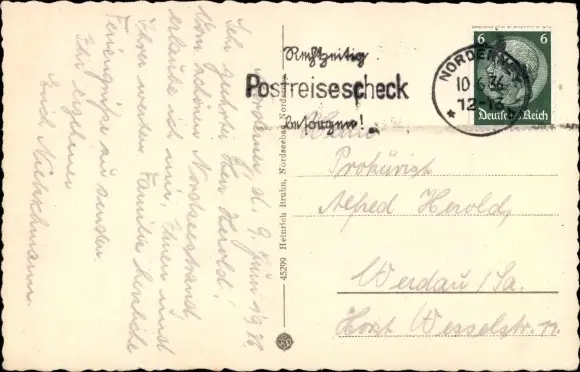 Norderney, d. 9. Juni 1936
Sehr geehrter Herr Herold!
Vom schönen Nordseestrand
erlaube ich mir, Ihnen und
Ihrer werten Familie herzliche
zu senden.
Ihr ergebener
45299 Heinrich Bruhn, Nordseebad Norderney
Rechtzeitig
Postreisescheck
besorgen!
NORDERNEY
10.6.36
12-13
6 6
Deutsches Reich
Herrn
Prokurist
Alfred Herold,
Werdau / Sa.
Horst Wesselstr. 11.